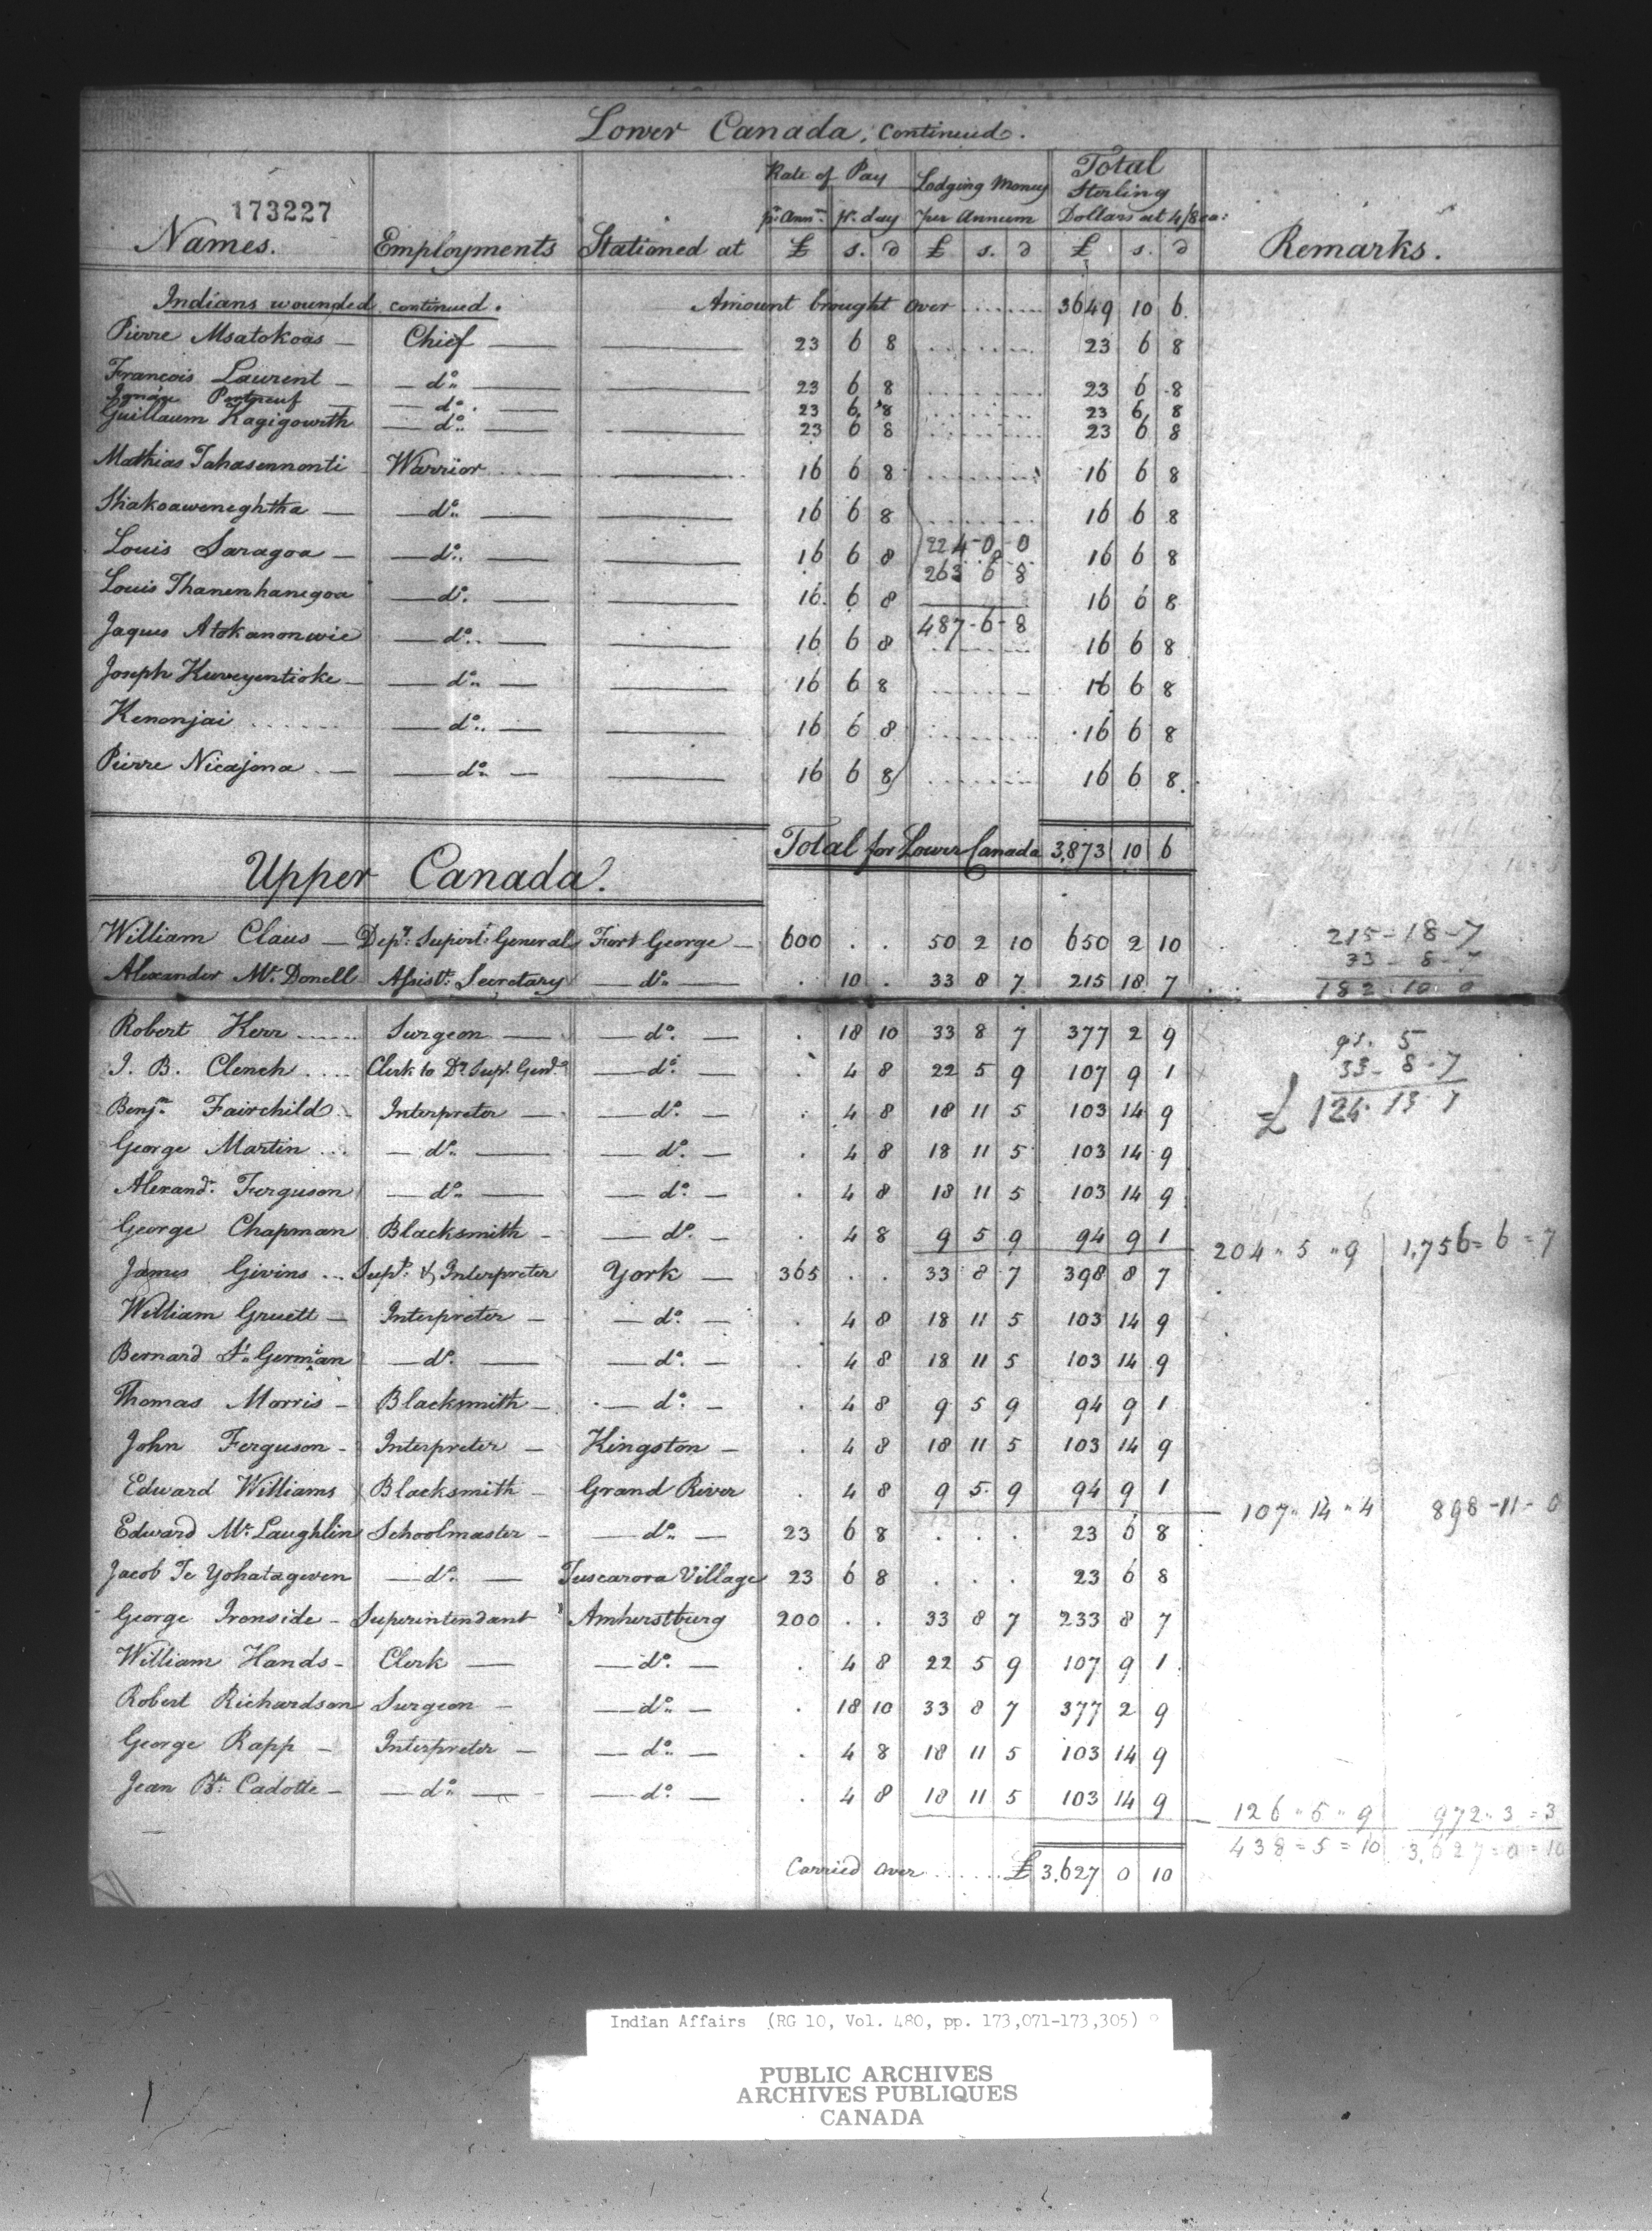 Lower Canada, continued.
173227
Names. Employments Stationed at Rate of Pay Lodging Money Total Sterling Remarks.
pr. Annm. pr. day per Annum Dollars at 4/8 ea:
£ s. d £ s. d £ s. d
Indians wounded continued. Amount brought over ........ 3649 10 6
Pierre Msatokoas — Chief — 23 6 8 23 6 8
Francois Laurent — do. — 23 6 8 23 6 8
Ignace Portneuf — do. — 23 6 8 23 6 8
Guillaum Kagigowith — do. — 23 6 8 23 6 8
Mathias Tahasennonti Warrior — 16 6 8 16 6 8
Shakoaweneghtha — do. — 16 6 8 16 6 8
Louis Saragoa — do. — 16 6 8 224-0-0 16 6 8
263 6 8
Louis Thanenhanegoa — do. — 16 6 8 16 6 8
487-6-8
Jaques Atokanonwie — do. — 16 6 8 16 6 8
Joseph Kuweyentioke — do. — 16 6 8 16 6 8
Kenonjai — do. — 16 6 8 16 6 8
Pierre Nicajona — do. — 16 6 8 16 6 8
Total for Lower Canada 3,873 10 6
Upper Canada.
William Claus — Depy. Supert. General Fort George — 600 . . 50 2 10 650 2 10 215-18-7
33-8-7
Alexander Mc.Donell Assistt. Secretary — do. — . 10 . 33 8 7 215 18 7 182 10 0
Robert Kerr Surgeon — do. — . 18 10 33 8 7 377 2 9
J. B. Clench Clerk to Dy. Sup. Genl. — do. — . 4 8 22 5 9 107 9 1 33-8-7
Benjn. Fairchild Interpreter — do. — . 4 8 18 11 5 103 14 9 £
George Martin — do. — — do. — . 4 8 18 11 5 103 14 9
Alexandr. Ferguson — do. — — do. — . 4 8 18 11 5 103 14 9
George Chapman Blacksmith — do. — . 4 8 9 5 9 94 9 1 204 " 5 " 9 1,756 = 6 = 7
James Givins Supt. & Interpreter York — 365 . . 33 8 7 398 8 7
William Gruett — Interpreter — do. — . 4 8 18 11 5 103 14 9
Bernard St. German — do. — — do. — . 4 8 18 11 5 103 14 9
Thomas Morris — Blacksmith — do. — . 4 8 9 5 9 94 9 1
John Ferguson — Interpreter — Kingston — . 4 8 18 11 5 103 14 9
Edward Williams Blacksmith — Grand River . 4 8 9 5 9 94 9 1 107 " 14 " 4 898-11-0
Edward Mc.Laughlin Schoolmaster — do. — 23 6 8 . . . 23 6 8
Jacob Te Yohatagwen — do. — Tuscarora Village 23 6 8 . . . 23 6 8
George Ironside — Superintendant Amherstburg 200 . . 33 8 7 233 8 7
William Hands — Clerk — do. — . 4 8 22 5 9 107 9 1
Robert Richardson Surgeon — do. — . 18 10 33 8 7 377 2 9
George Rapp — Interpreter — do. — . 4 8 18 11 5 103 14 9
Jean Bte. Cadotte — do. — — do. — . 4 8 18 11 5 103 14 9 126 " 5 " 9 972 " 3 = 3
438 = 5 = 10 3,627 = 0 = 10
Carried over ....... £ 3,627 0 10
Indian Affairs (RG 10, Vol. 480, pp. 173,071-173,305)
PUBLIC ARCHIVES
ARCHIVES PUBLIQUES
CANADA